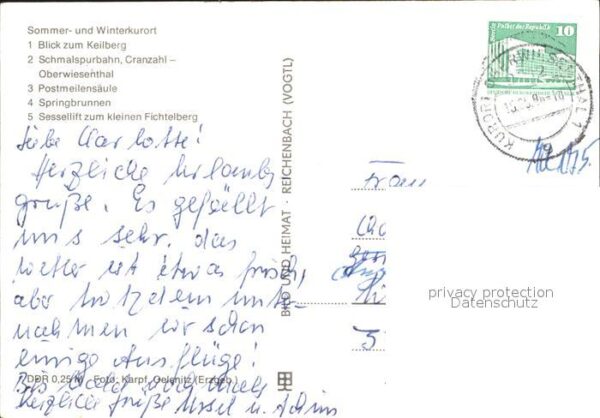 Sommer- und Winterkurort
1 Blick zum Keilberg
2 Schmalspurbahn, Cranzahl –
Oberwiesenthal
3 Postmeilensäule
4 Springbrunnen
5 Sessellift zum kleinen Fichtelberg
Liebe Charlotte!
Herzliche Urlaubs
grüße. Es gefällt
uns sehr, das
Wetter ist etwas frisch,
aber trotzdem unter-
nahmen wir schon
einige Ausflüge!
Bis
Herzliche Grüße Ursel u. Achim
DDR 0,25 M Foto: Karpf, Oelsnitz (Erzgeb.)
BILD UND HEIMAT · REICHENBACH (VOGTL)
10
KURORT OBERWIESENTHAL 1
Frau
privacy protection
Datenschutz